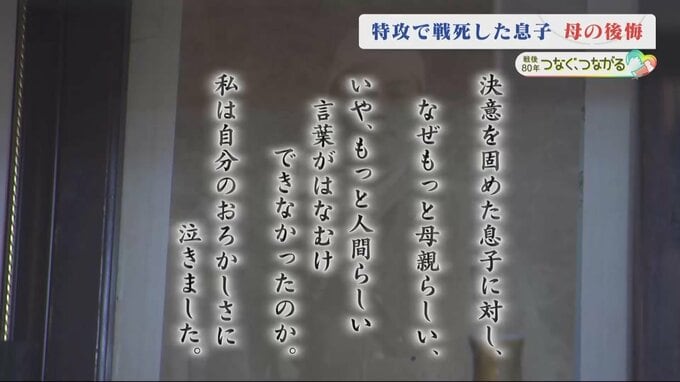 特攻で戦死した息子 母の後悔
戦後
80年 つなぐ、つながる
決意を固めた息子に対し、
なぜもっと母親らしい、
いや、もっと人間らしい
言葉がはなむけ
できなかったのか。
私は自分のおろかしさに
泣きました。